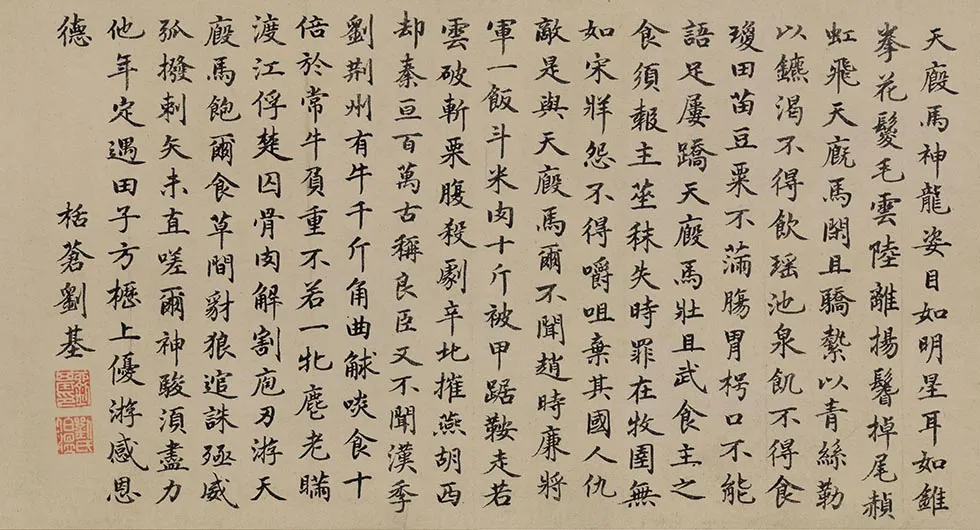 天廄馬神龍姿目如明星耳如錐
拳花鬉毛雲陸離揚鬐掉尾赬
虹飛天廄馬閑且驕縶以青絲勒
以鑣渴不得飲瑶池泉飢不得食
瓊田苗豆粟不滿腸胃枵口不能
語足屢蹻天廄馬壯且武食主之
食須報主莝秣失時罪在牧圉無
如宋牂怨不得嚼咀棄其國人仇
敵是與天廄馬爾不聞趙時廉將
軍一飯斗米肉十斤被甲踞鞍走若
雲破斬栗腹殺劇辛北摧燕胡西
却秦亘百萬古稱良臣又不聞漢季
劉荆州有牛千斤角曲觩啖食十
倍於常牛負重不若一牝麀老瞞
渡江俘楚囚骨肉解割庖刃游天
廄馬飽爾食草間豺狼追誅殛威
弧撥剌矢未直嗟爾神駿湏盡力
他年定遇田子方櫪上優游感恩
德
栝蒼劉基